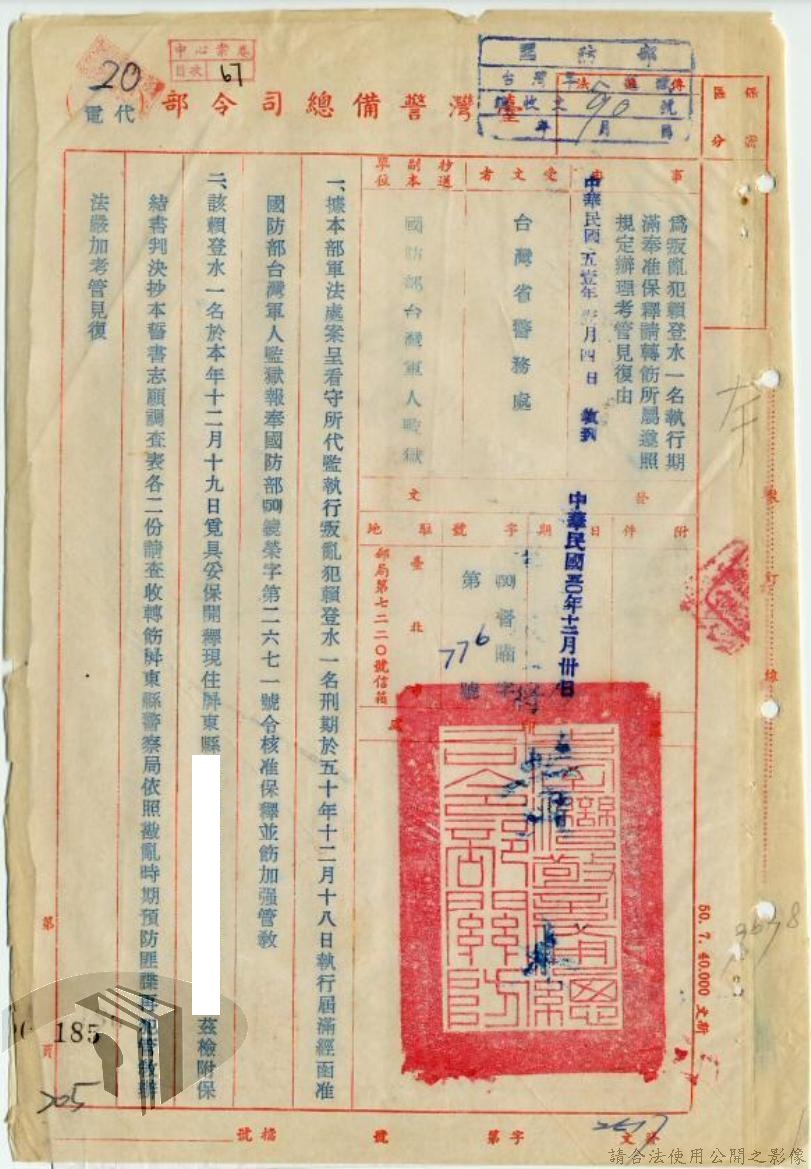 20
中心案卷
目次 67
臺灣警備總司令部
代電
國防部
收文
保密
區分
事由
為叛亂犯賴登水一名執行期
滿奉准保釋請轉飭所屬遵照
規定辦理考管見復由
受文者
台灣省警務處
抄送副本單位
國防部台灣軍人監獄
附件
發文
日期
中華民國五〇年十二月卅日
字號
(50)督
字
第
776
號
駐地
臺北
郵局第七二二〇號信箱
一、據本部軍法處案呈看守所代監執行叛亂犯賴登水一名刑期於五十年十二月十八日執行屆滿經函准
國防部台灣軍人監獄報奉國防部(50)
榮字第二六七一號令核准保釋並飭加强管教
二、該賴登水一名於本年十二月十九日覓具妥保開釋現住屏東縣
茲檢附保
結書判決抄本誓書志願調查表各二份請查收轉飭屏東縣警察局依照戡亂時期預防匪諜再犯管教辦
法嚴加考管見復
臺灣警備總司令部關防
裝訂線
50. 7. 40.000
第
頁
185
205
檔號
字第
號
請合法使用公開之影像